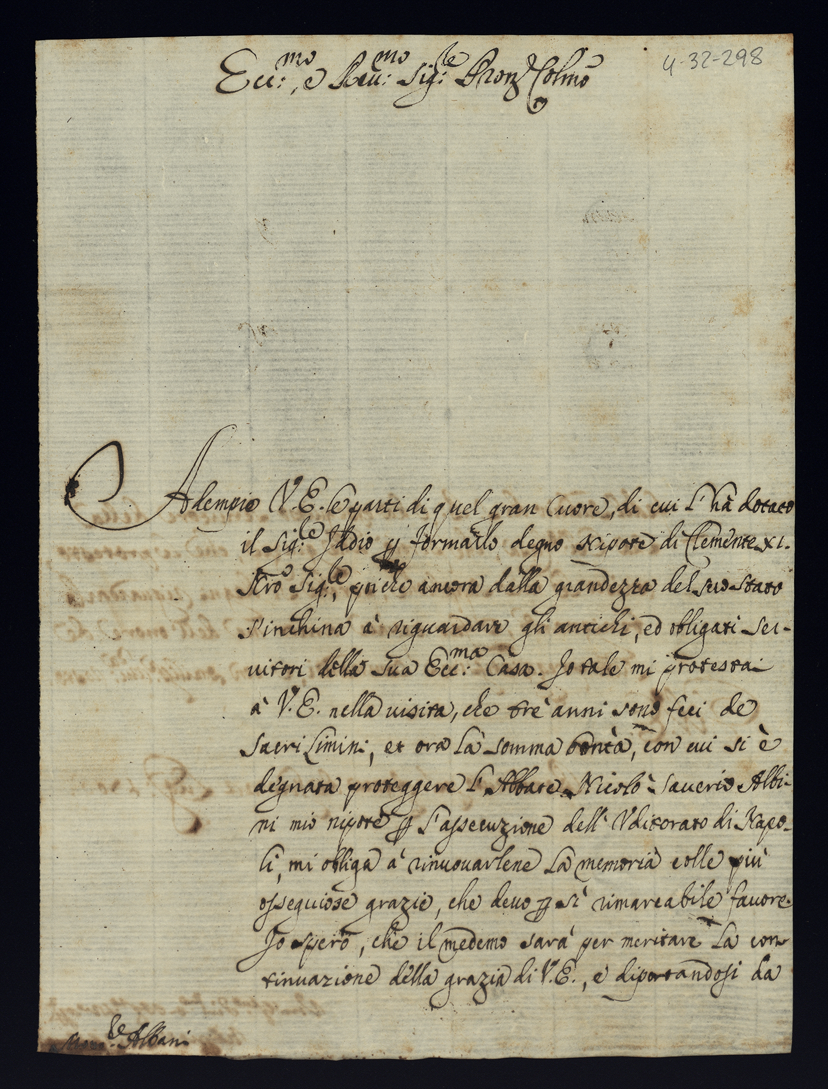 4-32-298
Ecc:mo, e Reu:mo Sig:re Pron Colmo
Adempie V.E. le parti di quel gran Cuore, di cui l'hà dotato
il Sig:re Iddio p formarlo degno Nipote di Clemente XI.
Nro Sig:re, poiche ancora dalla grandezza del suo stato
s'inchina à riguardare gli antichi, ed obligati ser-
uitori della sua Ecc:ma Casa. Io tale mi protestai
à V.E. nella uisita, che trè anni sono feci de
Sacri Limini, et ora la somma bontà, con cui si è
degnata proteggere l'Abbate Nicolò Sauerio Albi-
ni mio nipote p l'assecuzione dell'Vditorato di Napo-
li, mi obliga à rinuouarlene la memoria colle più
ossequiose grazie, che deuo p sì rimarcabile fauore.
Io spero, che il medemo sarà per meritare la con-
tinuazione della grazia di V.E., e diportandosi da
Albani